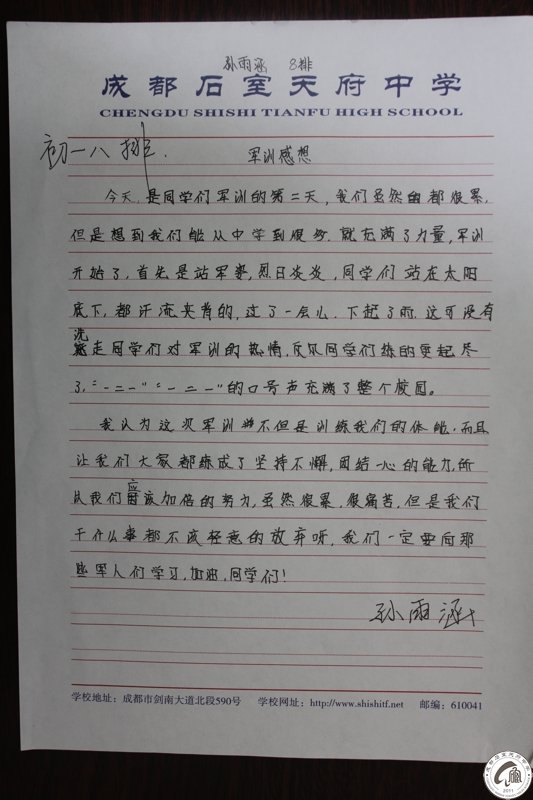 孙雨涵 8排
成都石室天府中学
CHENGDU SHISHI TIANFU HIGH SCHOOL
初一八排.
军训感想
今天,是同学们军训的第二天,我们虽然的都很累,
但是想到我们能从中学到很多.就充满了力量,军训
开始了,首先是站军姿,烈日炎炎,同学们站在太阳
底下,都汗流夹背的,过了一会儿.下起了雨.这可没有
洗
走同学们对军训的热情,反爪同学们练的更起尽
了,“一二一”“一二一”的口号声充满了整个校园。
我认为这次军训不但是训练我们的体能.而且
让我们大家都练成了坚持不懈,团结一心的能力,所
应
以我们该加倍的努力,虽然很累,很痛苦,但是我们
干什么事都不该轻意的放弃呀,我们一定要向那
些军人们学习,加油,同学们!
孙雨涵
学校地址：成都市剑南大道北段590号 学校网址：http://www.shishitf.net 邮编：610041
2011